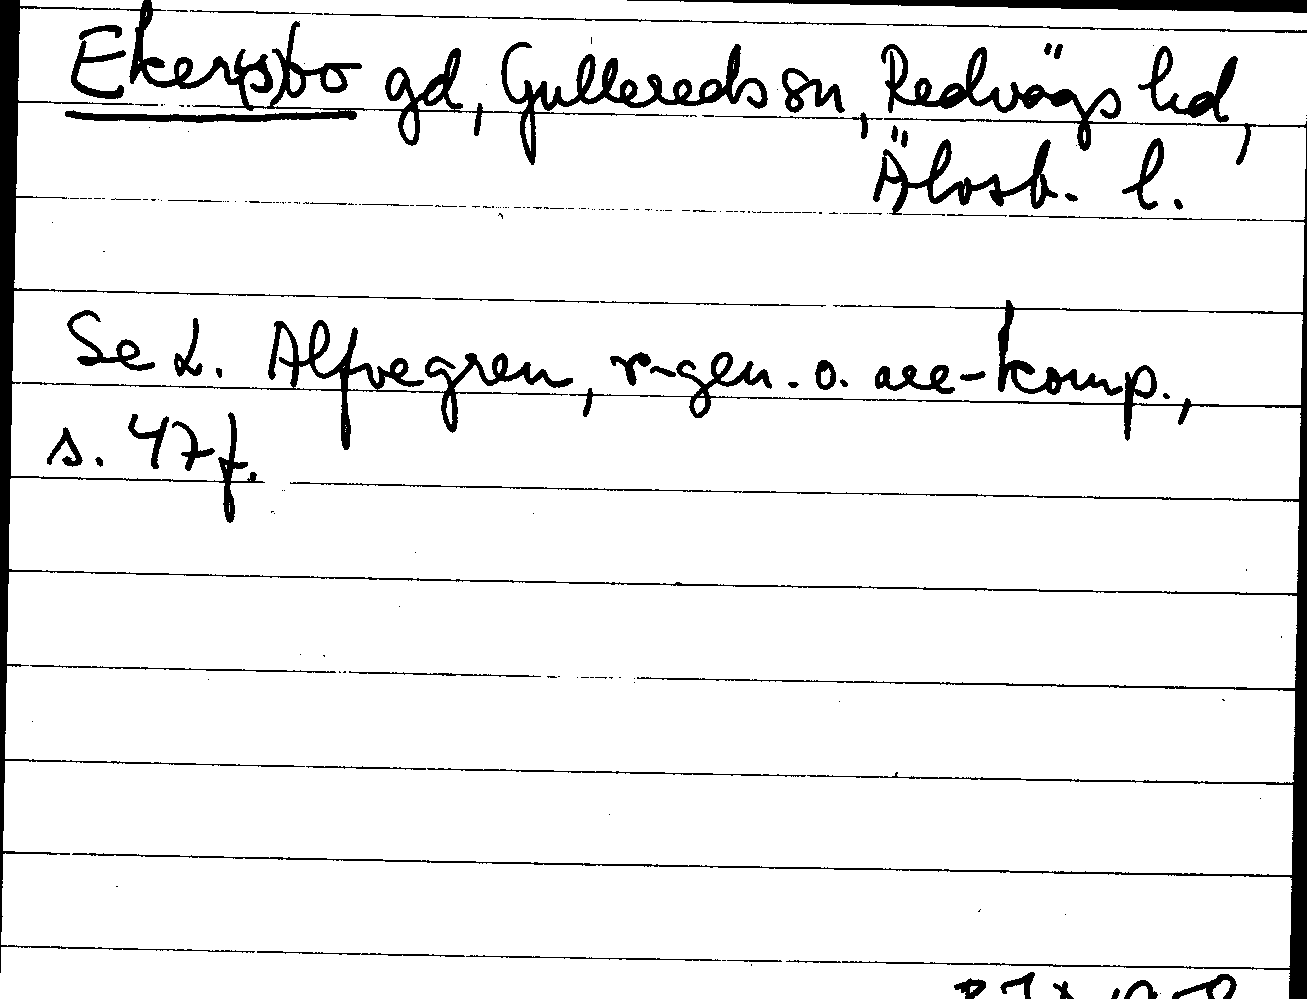 Eker(s)bo gd, Gullereds sn, Redvägs hd,
Älvsb. l.
Se L. Alfvegren, r-gen. o. acc-komp.,
s. 47 f.